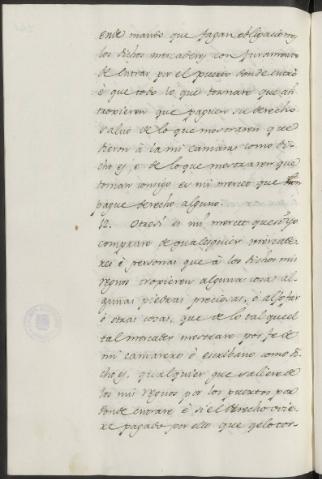 ende mando que fagan obligacion
los dichos mercaderes con juramento
de entrar por el puerto donde entró
é que todo lo que tornare que ahi
troxieren que paguen su derecho
salvo de lo que mostraren que
dieron à la mi camara como di-
cho es, e de lo que mostraren que
toman consigo es mi merced que non
pague derecho alguno.
12. Otrosi es mi merced que si Yo
comprare de qualesquier mercade-
res ò personas que à los dichos mis
regnos troxieren alguna cosa al-
gunas piedras preciosas, ò aljofar
ò otras cosas, que de lo tal que el
tal mercader mostrare por fe de
mi camarero ò escribano como di-
cho es, qualquier que saliere de
los mis regnos por los puertos por
donde entrare è si el derecho ovie-
re pagado por ello que gelo tor-